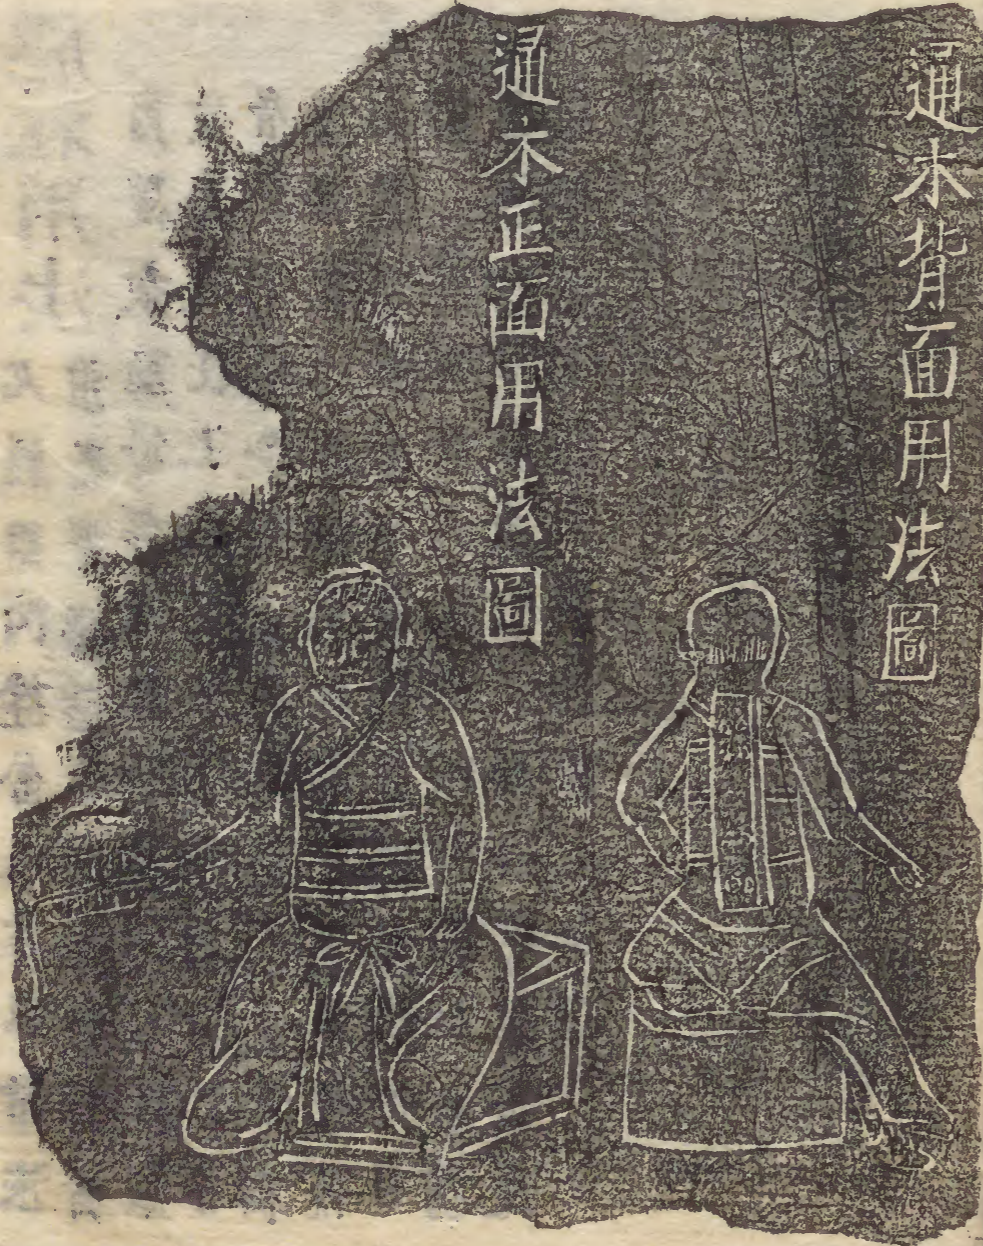 通木背面用法圖
通木正面用法圖